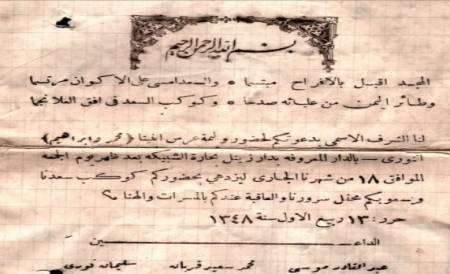 بسم الله الرحمن الرحيم
المجد اقبل بالافراح مبتسما * والسعد امسى على الاكوان مرتسما
وطائر اليمن من عليائه صدعا * وكوكب السعد فى افق العلا نجما
لنا الشرف الاسمى بدعوتكم لحضور وليمة عرس الهنا (محمد وابراهيم)
النورى - بالدار المعروفه بدار زينل بحارة الشبيكه بعد ظهر يوم الجمعة
الموافق ١٨ من شهرنا الجارى ليزدهى بحضوركم كوكب سعدنا
ويسمو بكم محفل سرورنا والعاقبة عندكم بالمسرات والهنا
حرر: ١٣ ربيع الاول سنة ١٣٤٨
الداعـــــــين
عبدالقادر موسى محمد سعيد قربان سليمان نورى